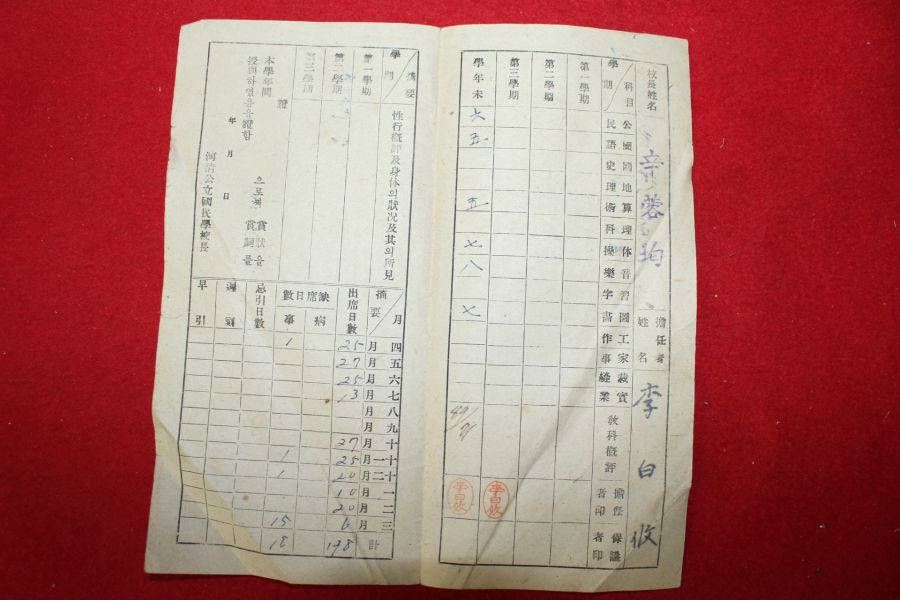 校長姓名
擔任者姓名 李白攸
學期 科目 公民 國語 國史 地理 算術 理科 体操 音樂 習字 圖畵 工作 家事 裁縫 實業 敎科槪評 擔任者印 保護者印
第一學期
第二學期
第三學期
學年末 六 五 五 七 八 七
學期 摘要 性行槪評及身体의狀况及其의所見
第一學期
第二學期
第三學期
本學年間
으로써 賞狀을 賞詞를
授與하였음을證함
年 月 日
河淸公立國民學校長
月 四月 五月 六月 七月 八月 九月 十月 十一月 十二月 一月 二月 三月 計
摘要
出席日數 25 27 25 13 27 25 20 10 20 6 198
缺席日數 病
事 1 1 1 15 18
忌引日數
遲刻
早引